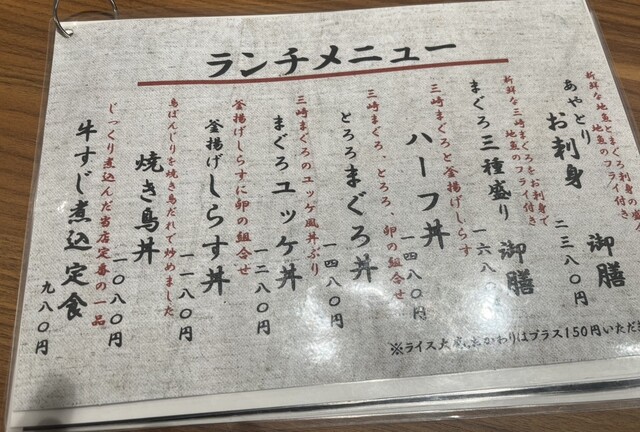 ランチメニュー
新鮮な地魚とまぐろ刺身の
地魚のフライ付き
あやとり
お刺身
御膳
二三八〇円
新鮮な三崎まぐろをお刺身で
地魚のフライ付き
まぐろ三種盛り
御膳
一六八〇円
三崎まぐろと釜揚げしらす
ハーフ丼
一四八〇円
三崎まぐろ、とろろ、卵の組合せ
とろろまぐろ丼
一四八〇円
三崎まぐろのユッケ風丼ぶり
まぐろユッケ丼
一二八〇円
釜揚げしらすに卵の組合せ
釜揚げしらす丼
一一八〇円
鳥ぼんじりを焼き鳥だれで炒めました
焼き鳥丼
一〇八〇円
じっくり煮込んだ当店定番の一品
牛すじ煮込定食
九八〇円
※ライス大盛、おかわりはプラス150円いただ